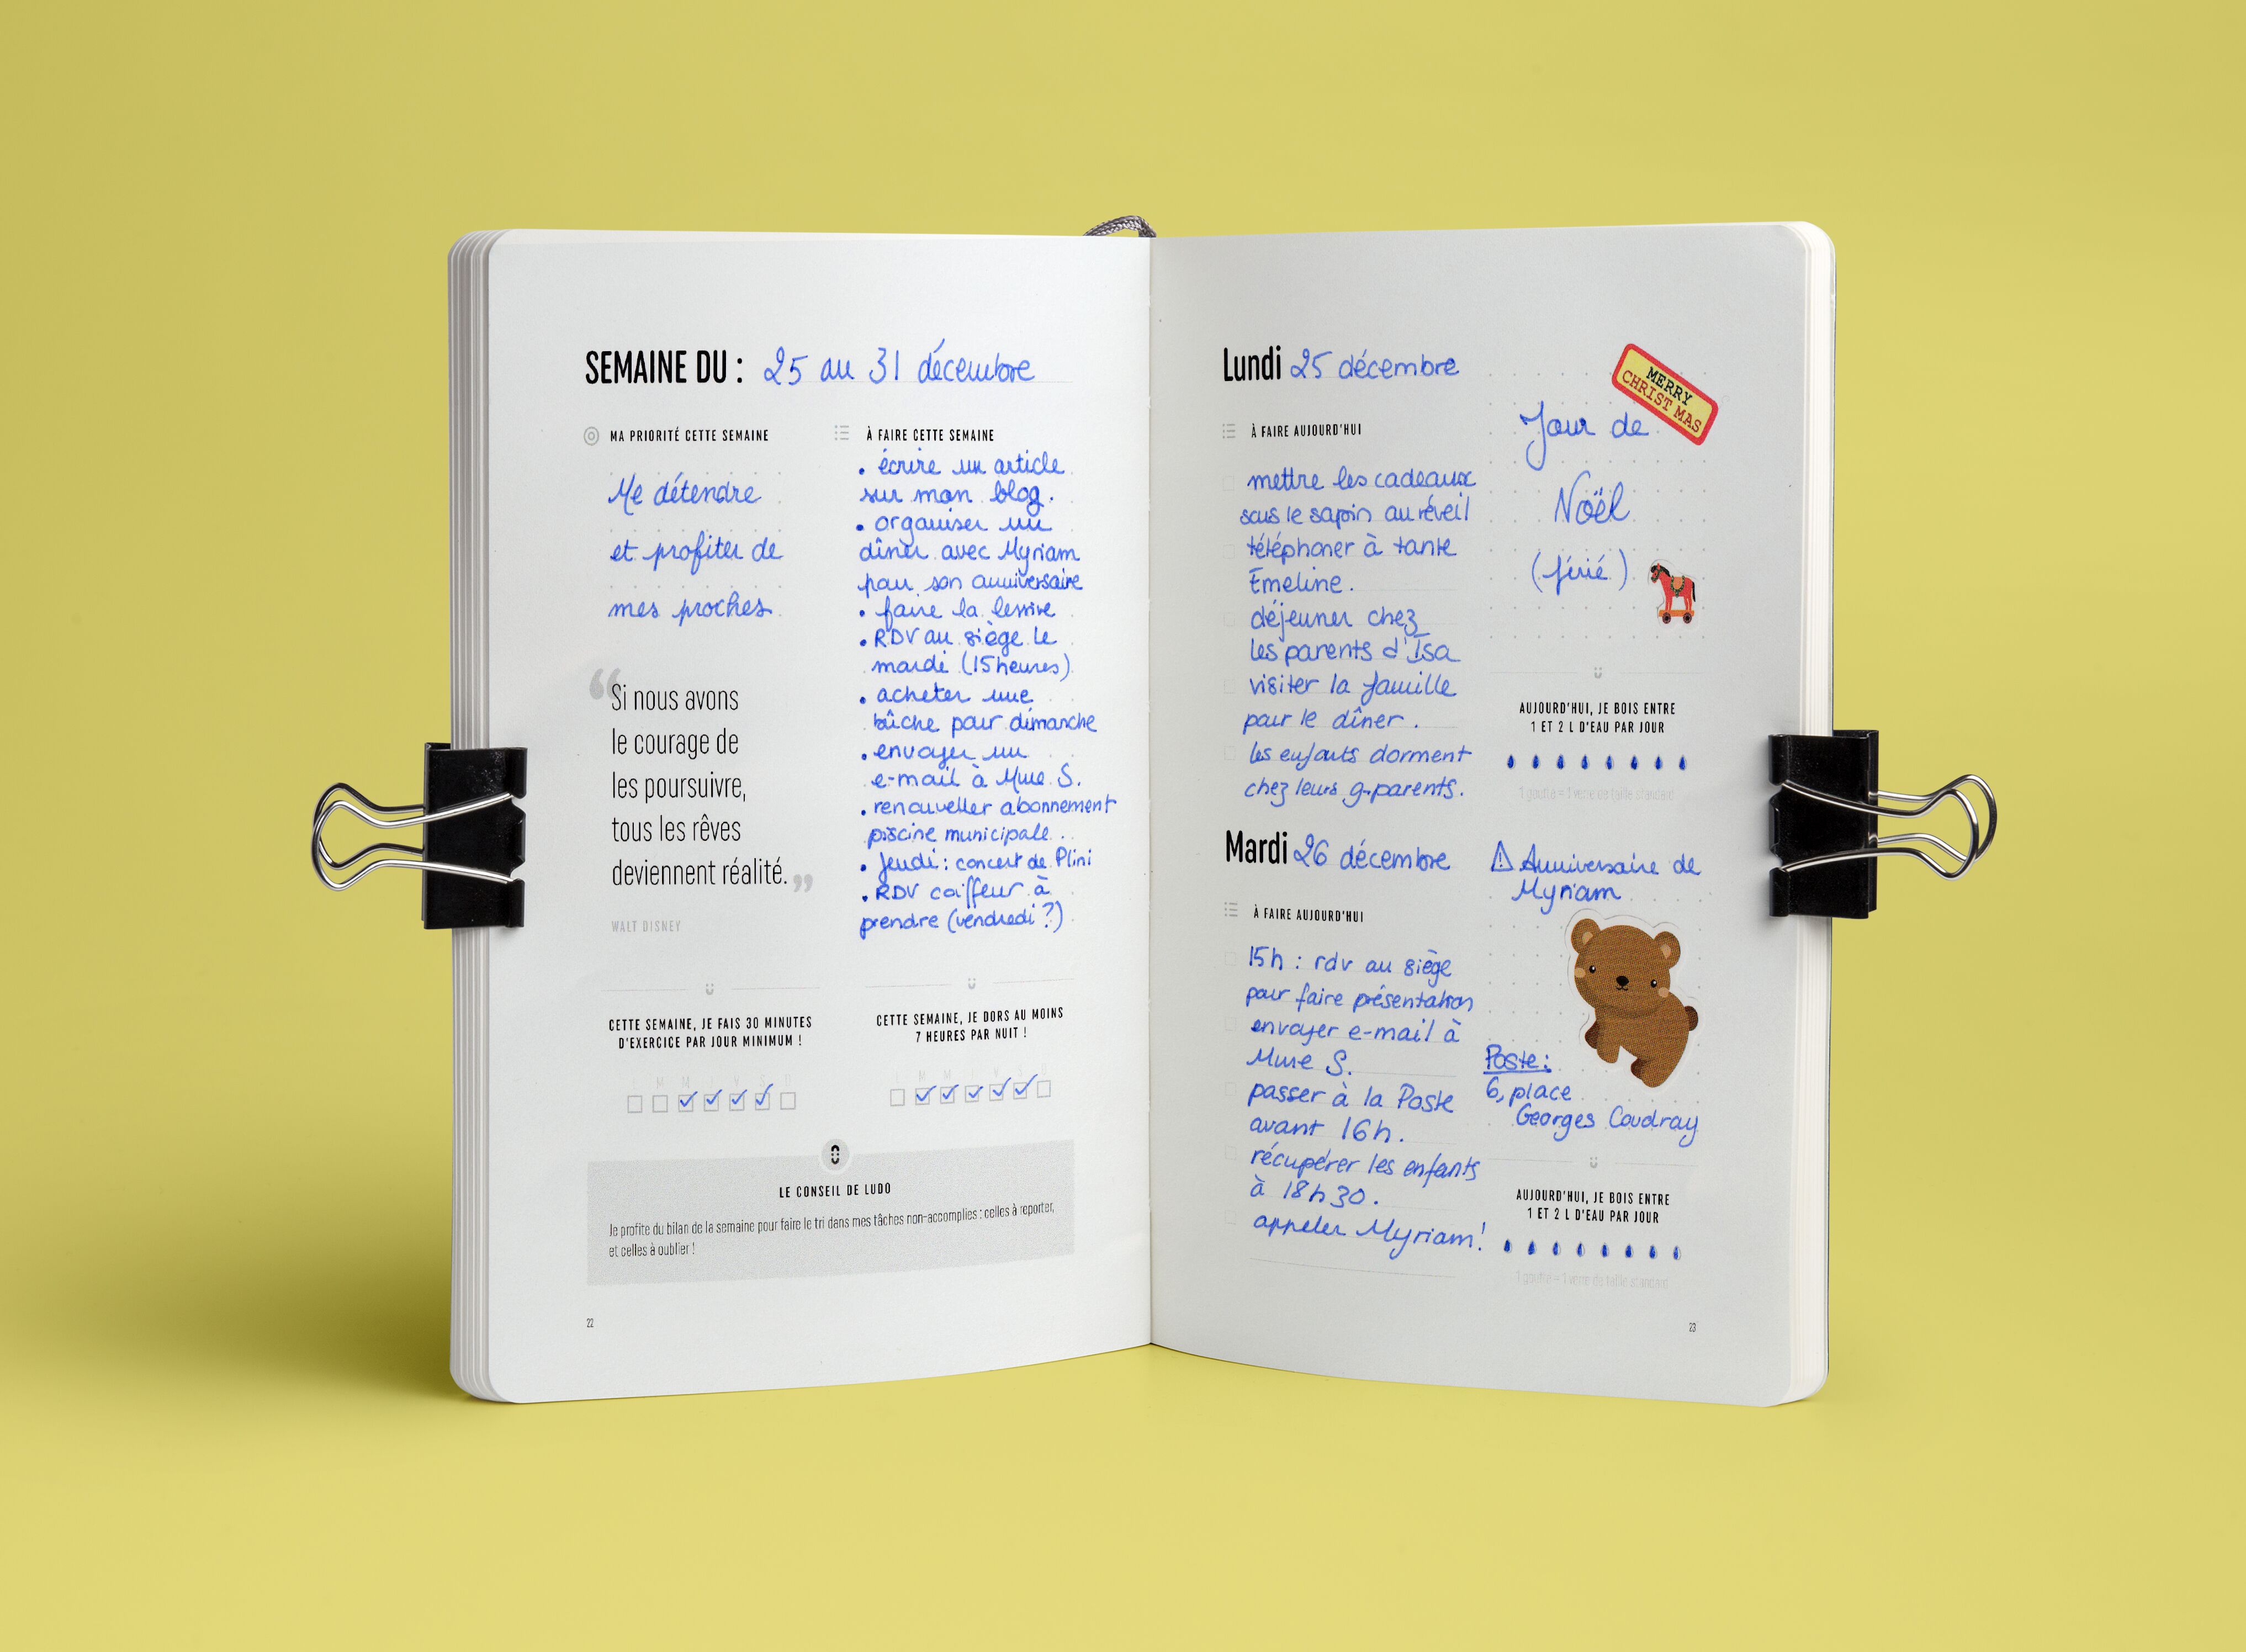 SEMAINE DU : 25 au 31 décembre
MA PRIORITÉ CETTE SEMAINE
Me détendre
et profiter de
mes proches
“Si nous avons
le courage de
les poursuivre,
tous les rêves
deviennent réalité.”
WALT DISNEY
À FAIRE CETTE SEMAINE
• écrire un article
sur mon blog.
• organiser un
dîner avec Myriam
pour son anniversaire
• faire la lessive
• RDV au siège le
mardi (15heures)
• acheter une
bûche pour dimanche
• envoyer un
e-mail à Mme S.
• renouveller abonnement
piscine municipale
• Jeudi : concert de Plini
• RDV coiffeur à
prendre (vendredi ?)
CETTE SEMAINE, JE FAIS 30 MINUTES
D'EXERCICE PAR JOUR MINIMUM !
L M M J V S D
CETTE SEMAINE, JE DORS AU MOINS
7 HEURES PAR NUIT !
L M M J V S D
LE CONSEIL DE LUDO
Je profite du bilan de la semaine pour faire le tri dans mes tâches non-accomplies : celles à reporter,
et celles à oublier !
22
Lundi 25 décembre
À FAIRE AUJOURD'HUI
mettre les cadeaux
sous le sapin au réveil
téléphoner à tante
Emeline.
déjeuner chez
les parents d'Isa
visiter la famille
pour le dîner.
les enfants dorment
chez leurs g-parents.
MERRY
CHRISTMAS
Jour de
Noël
(férié)
AUJOURD'HUI, JE BOIS ENTRE
1 ET 2 L D'EAU PAR JOUR
1 goutte = 1 verre de taille standard
Mardi 26 décembre
À FAIRE AUJOURD'HUI
15h : rdv au siège
pour faire présentation
envoyer e-mail à
Mme S.
passer à la Poste
avant 16h.
récupérer les enfants
à 18h30.
appeler Myriam!
⚠ Anniversaire de
Myriam
Poste :
6, place
Georges Coudray
AUJOURD'HUI, JE BOIS ENTRE
1 ET 2 L D'EAU PAR JOUR
1 goutte = 1 verre de taille standard
23